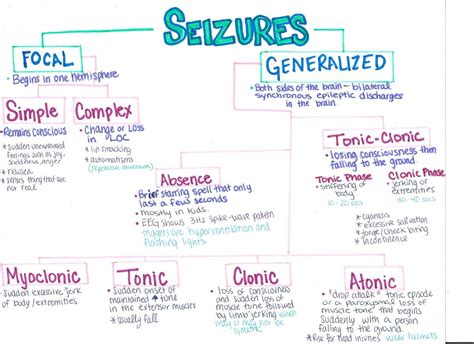 SEIZURES
FOCAL
• Begins in one hemisphere
GENERALIZED
• Both sides of the brain - bilateral
synchronous epileptic discharges
in the brain
Simple
• Remains conscious
* sudden unexplained
feelings such as joy,
sadness, anger
* nausea
* senses things that are
not real
Complex
• Change or Loss
in LOC
* lip smacking
* automatisms
(repetitive movements)
Absence
• Brief staring spell that only
last a few seconds
• mostly in kids
• EEG shows 3Hz spike-wave pattern
triggers are hyperventilation and
flashing lights
Tonic-Clonic
• losing consciousness then
falling to the ground.
Tonic Phase
stiffening of
body
10-20 secs
Clonic Phase
jerking of
extremities
30-40 secs
* cyanosis
* excessive salivation
* tongue/cheek biting
* incontinence
Myoclonic
• Sudden excessive jerk
of body/extremities
Tonic
• Sudden onset of
maintained ↑ tone
in the extensor muscles
* Usually fall
Clonic
• loss of consciousness
and sudden loss of
muscle tone followed
by limb jerking which
may or may not be
symmetric
Atonic
• "drop attack" tonic episode
or a paroxysmal loss of
muscle tone that begins
suddenly with a person
falling to the ground.
* Risk for head injuries wear helmets